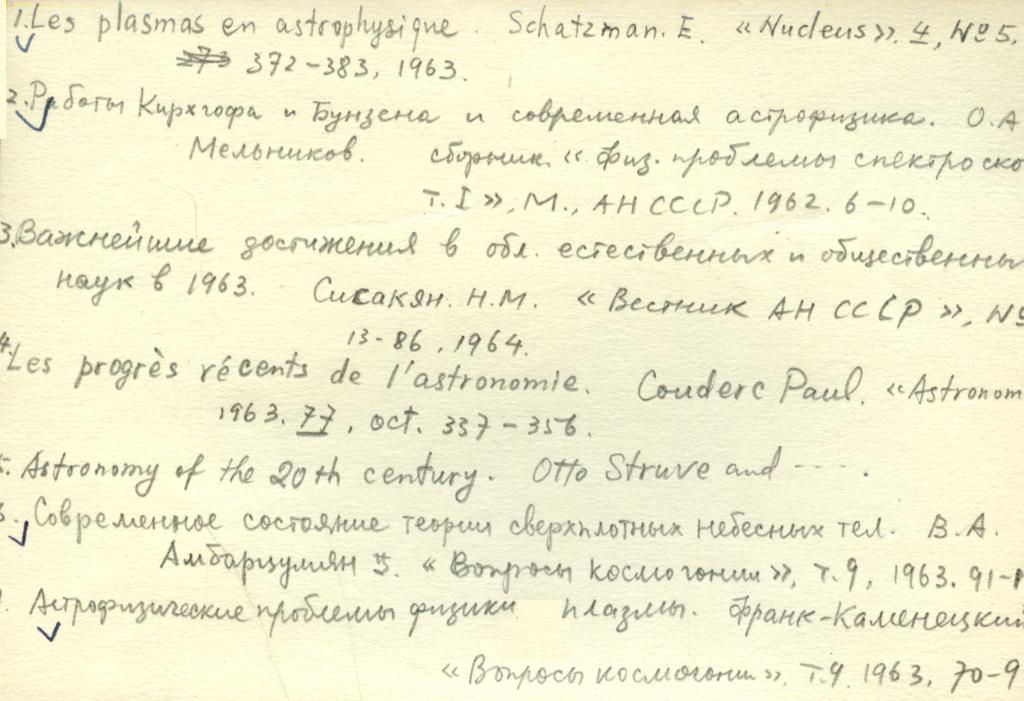 1. Les plasmas en astrophysique. Schatzman. E. «Nucleus». 4, № 5.
372-383, 1963.
2. Работы Кирхгофа и Бунзена и современная астрофизика. О.А
Мельников. сборник «Физ. проблемы спектроско
т. I», М., АН СССР. 1962. 6-10.
3. Важнейшие достижения в обл. естественных и общественны
наук в 1963. Сисакян. Н.М. «Вестник АН СССР», №
13-86, 1964.
4. Les progrès récents de l'astronomie. Couderc Paul. «Astronom
1963. 77, oct. 337-356.
5. Astronomy of the 20th century. Otto Struve and ---- .
Современное состояние теории сверхплотных небесных тел. В.А.
Амбарцумян «Вопросы космогонии», т.9, 1963. 91-
Астрофизические проблемы физики плазмы. Франк-Каменецкий
«Вопросы космогонии», Т.9. 1963, 70-9